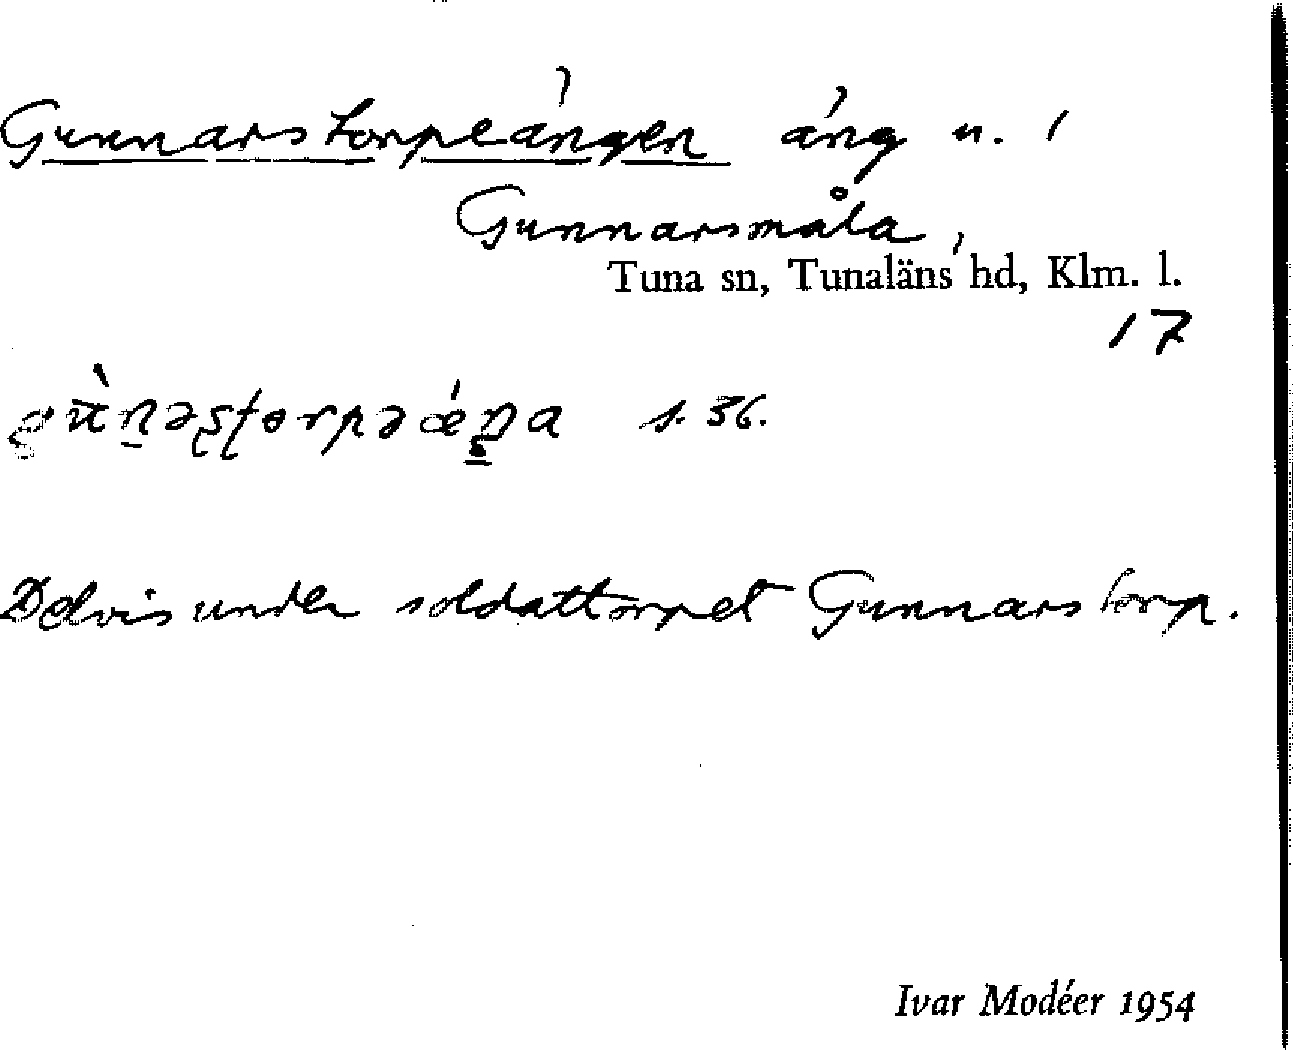 Gunnarstorpeängen äng u. 1
Gunnarsmåla,
Tuna sn, Tunaläns hd, Klm. l.
17
s. 36.
Delvis under soldattorpet Gunnarstorp.
Ivar Modéer 1954